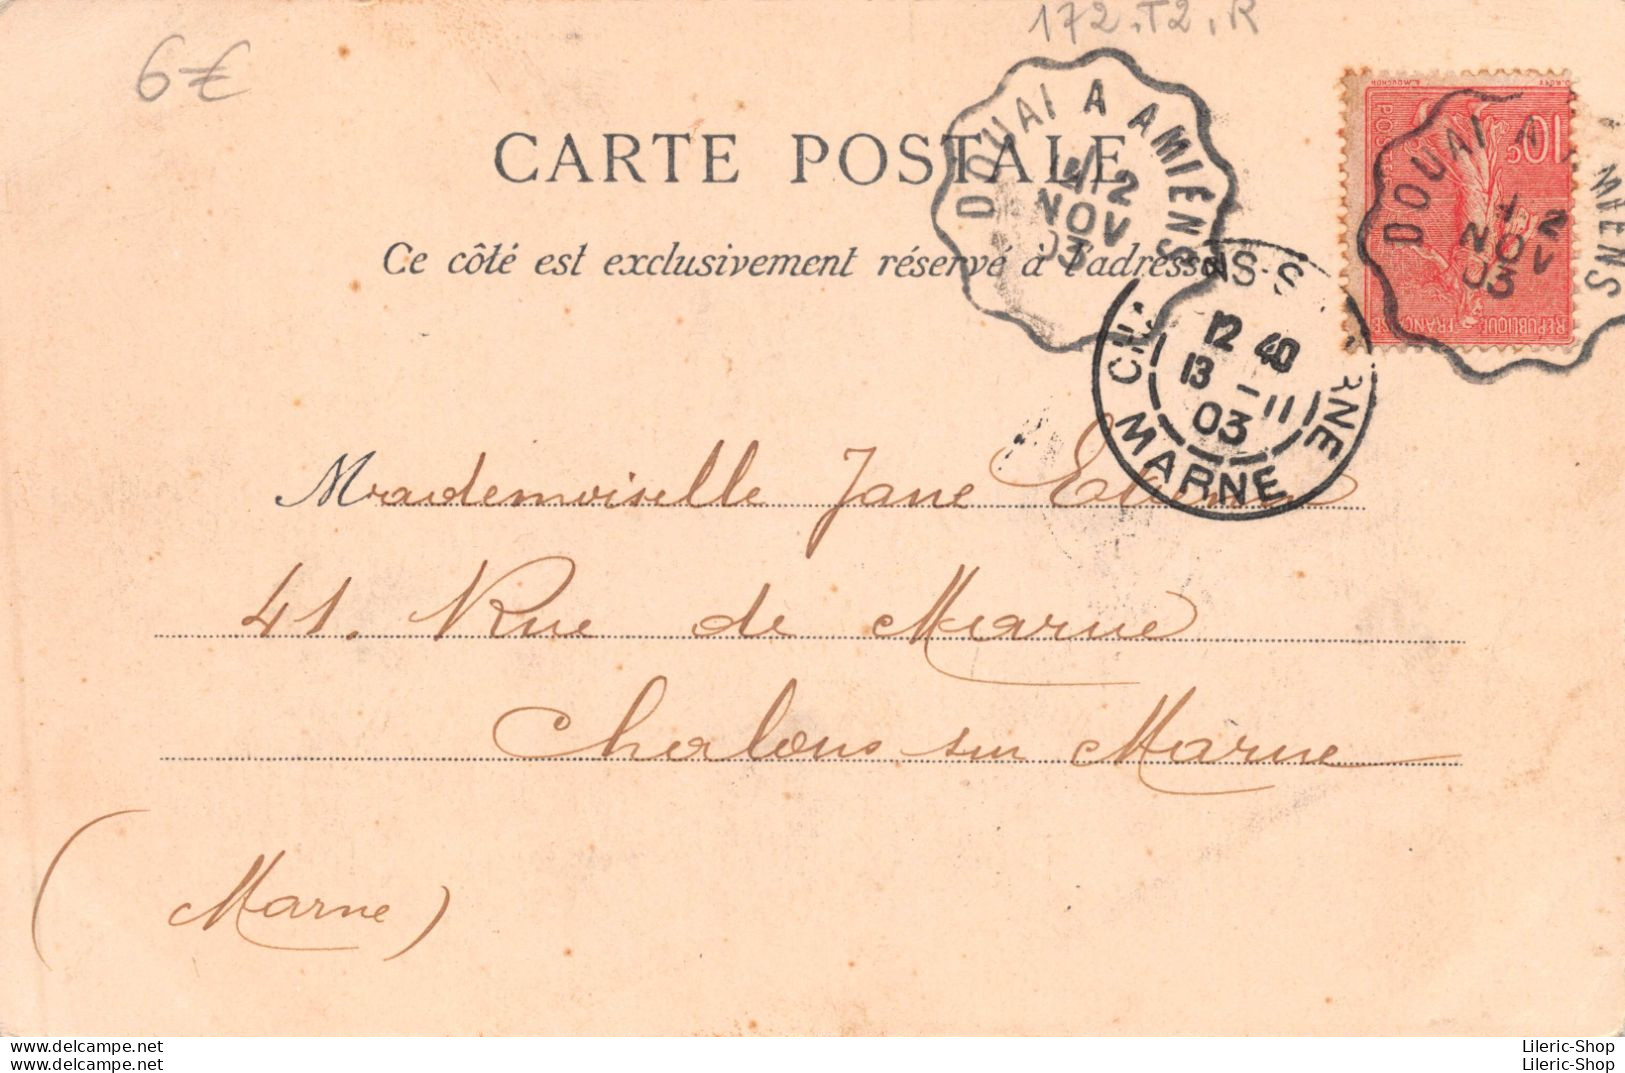 172.T2.R
6€
CARTE POSTALE
Ce côté est exclusivement réservé à l'adresse
DOUAI A AMIENS
12
NOV
03
DOUAI A AMIENS
12
NOV
03
10c
POSTES
REPUBLIQUE FRANÇAISE
12 40
13 - 11
03
MARNE
Mademoiselle Jane
41. Rue de Marne
Chalons sur Marne
(Marne)
www.delcampe.net
www.delcampe.net
Lileric-Shop
Lileric-Shop